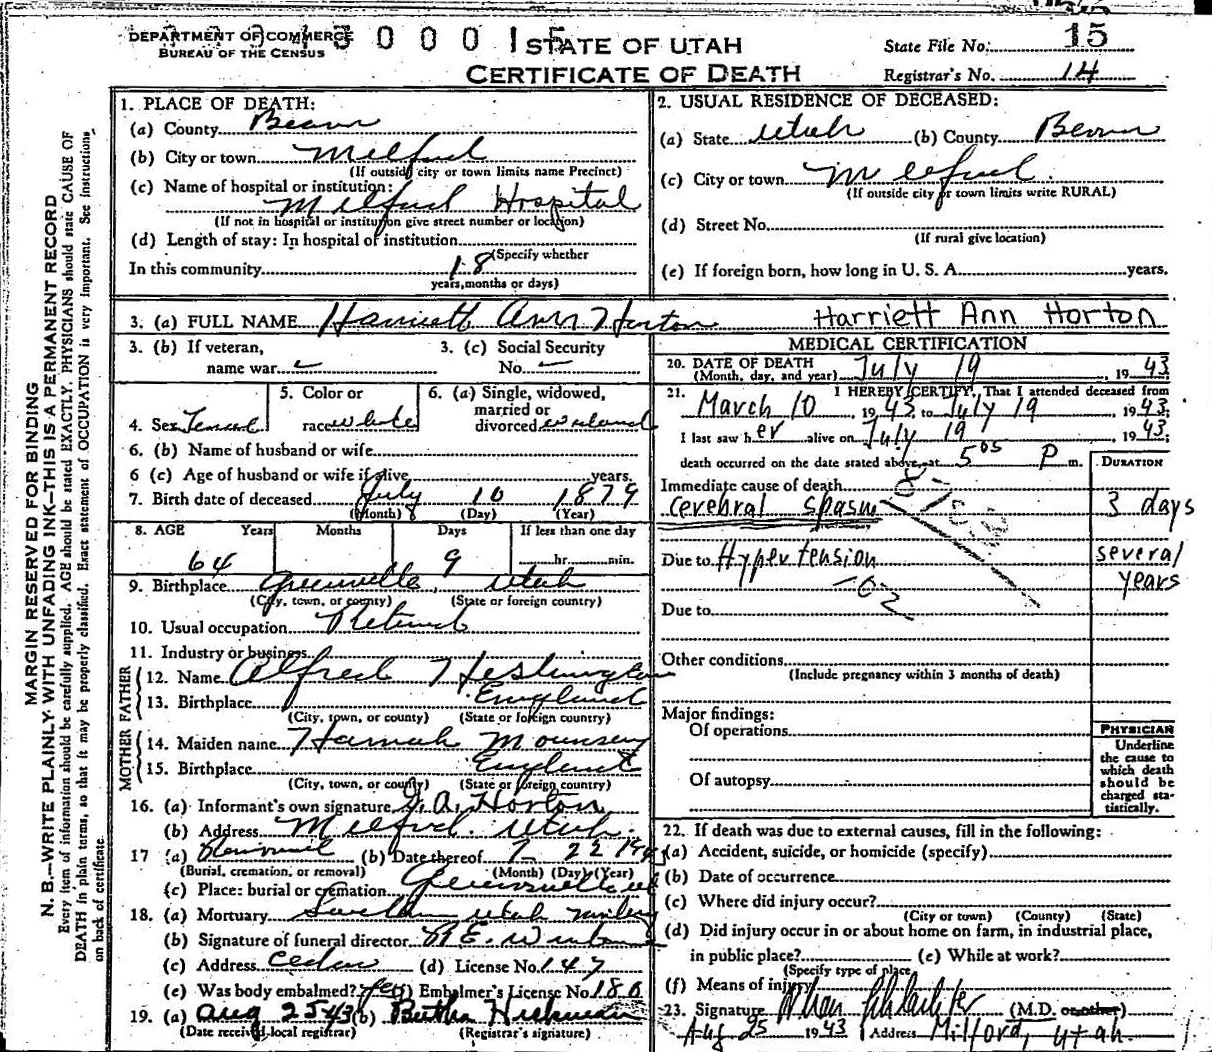 DEPARTMENT OF COMMERCE
BUREAU OF THE CENSUS
STATE OF UTAH
CERTIFICATE OF DEATH
State File No. 15
Registrar's No. 14
MARGIN RESERVED FOR BINDING
N. B.—WRITE PLAINLY WITH UNFADING INK—THIS IS A PERMANENT RECORD
Every item of information should be carefully supplied. AGE should be stated EXACTLY. PHYSICIANS should state CAUSE OF
DEATH in plain terms, so that it may be properly classified. Exact statement of OCCUPATION is very important. See instructions
on back of certificate.
1. PLACE OF DEATH:
(a) County Beaver
(b) City or town Milford
(If outside city or town limits name Precinct)
(c) Name of hospital or institution:
Milford Hospital
(If not in hospital or institution give street number or location)
(d) Length of stay: In hospital of institution
(Specify whether
In this community 18
years, months or days)
2. USUAL RESIDENCE OF DECEASED:
(a) State Utah (b) County Beaver
(c) City or town Milford
(If outside city or town limits write RURAL)
(d) Street No.
(If rural give location)
(e) If foreign born, how long in U. S. A. years.
3. (a) FULL NAME Harriett Ann Horton Harriett Ann Horton
3. (b) If veteran,
name war
3. (c) Social Security
No.
4. Sex Female
5. Color or
race white
6. (a) Single, widowed,
married or
divorced widowed
6. (b) Name of husband or wife
6 (c) Age of husband or wife if alive years.
7. Birth date of deceased July 10 1879
(Month) (Day) (Year)
8. AGE Years Months Days If less than one day
64 9 hr. min.
9. Birthplace Greenville Utah
(City, town, or county) (State or foreign country)
10. Usual occupation Retired
11. Industry or business
FATHER
12. Name Alfred Heslington
13. Birthplace England
(City, town, or county) (State or foreign country)
MOTHER
14. Maiden name Hannah Mounsey
15. Birthplace England
(City, town, or county) (State or foreign country)
16. (a) Informant's own signature J. A. Horton
(b) Address Milford Utah
17 (a) Removal (b) Date thereof 7 22 1943
(Burial, cremation, or removal) (Month) (Day) (Year)
(c) Place: burial or cremation Greenville Ut
18. (a) Mortuary Utah
(b) Signature of funeral director
(c) Address Cedar (d) License No. 147
(e) Was body embalmed? yes (f) Embalmer's License No. 180
19. (a) Aug 25 43 (b) Bertha Hickman
(Date received local registrar) (Registrar's signature)
MEDICAL CERTIFICATION
20. DATE OF DEATH
(Month, day, and year) July 19, 1943
21. I HEREBY CERTIFY, That I attended deceased from
March 10, 1943 to July 19, 1943
I last saw her alive on July 19, 1943
death occurred on the date stated above, at 5 05 P m.
DURATION
Immediate cause of death
cerebral spasm 3 days
Due to Hypertension several
years
Due to
Other conditions
(Include pregnancy within 3 months of death)
Major findings:
Of operations
Of autopsy
PHYSICIAN
Underline
the cause to
which death
should be
charged sta-
tistically.
22. If death was due to external causes, fill in the following:
(a) Accident, suicide, or homicide (specify)
(b) Date of occurrence
(c) Where did injury occur?
(City or town) (County) (State)
(d) Did injury occur in or about home on farm, in industrial place,
in public place? (e) While at work?
(Specify type of place
(f) Means of injury
23. Signature (M.D. or other)
Aug 25 1943 Address Milford, Utah